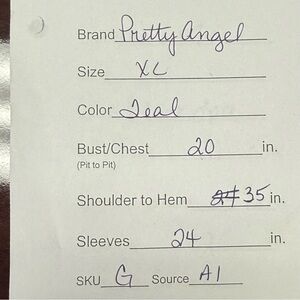 Brand Pretty Angel
Size XL
Color Teal
Bust/Chest 20 in.
(Pit to Pit)
Shoulder to Hem 35 in.
Sleeves 24 in.
SKU G Source A1